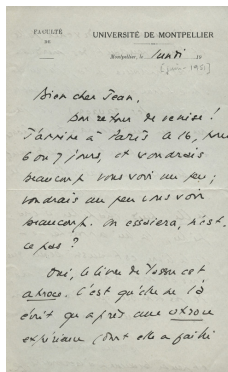 FACULTÉ
DE
UNIVERSITÉ DE MONTPELLIER
Montpellier, le lundi 19
[juin - 1951]
Bien cher Jean,
bon retour de venise !
J'arrive à Paris le 16, pour
6 ou 7 jours, et voudrais
beaucoup vous voir un peu ;
voudrais un peu vous voir
beaucoup. On essaiera, n'est-
ce pas ?
Oui, le livre de est
atroce. C'est qu'elle l'a
écrit après une atroce
expérience (dont elle a failli